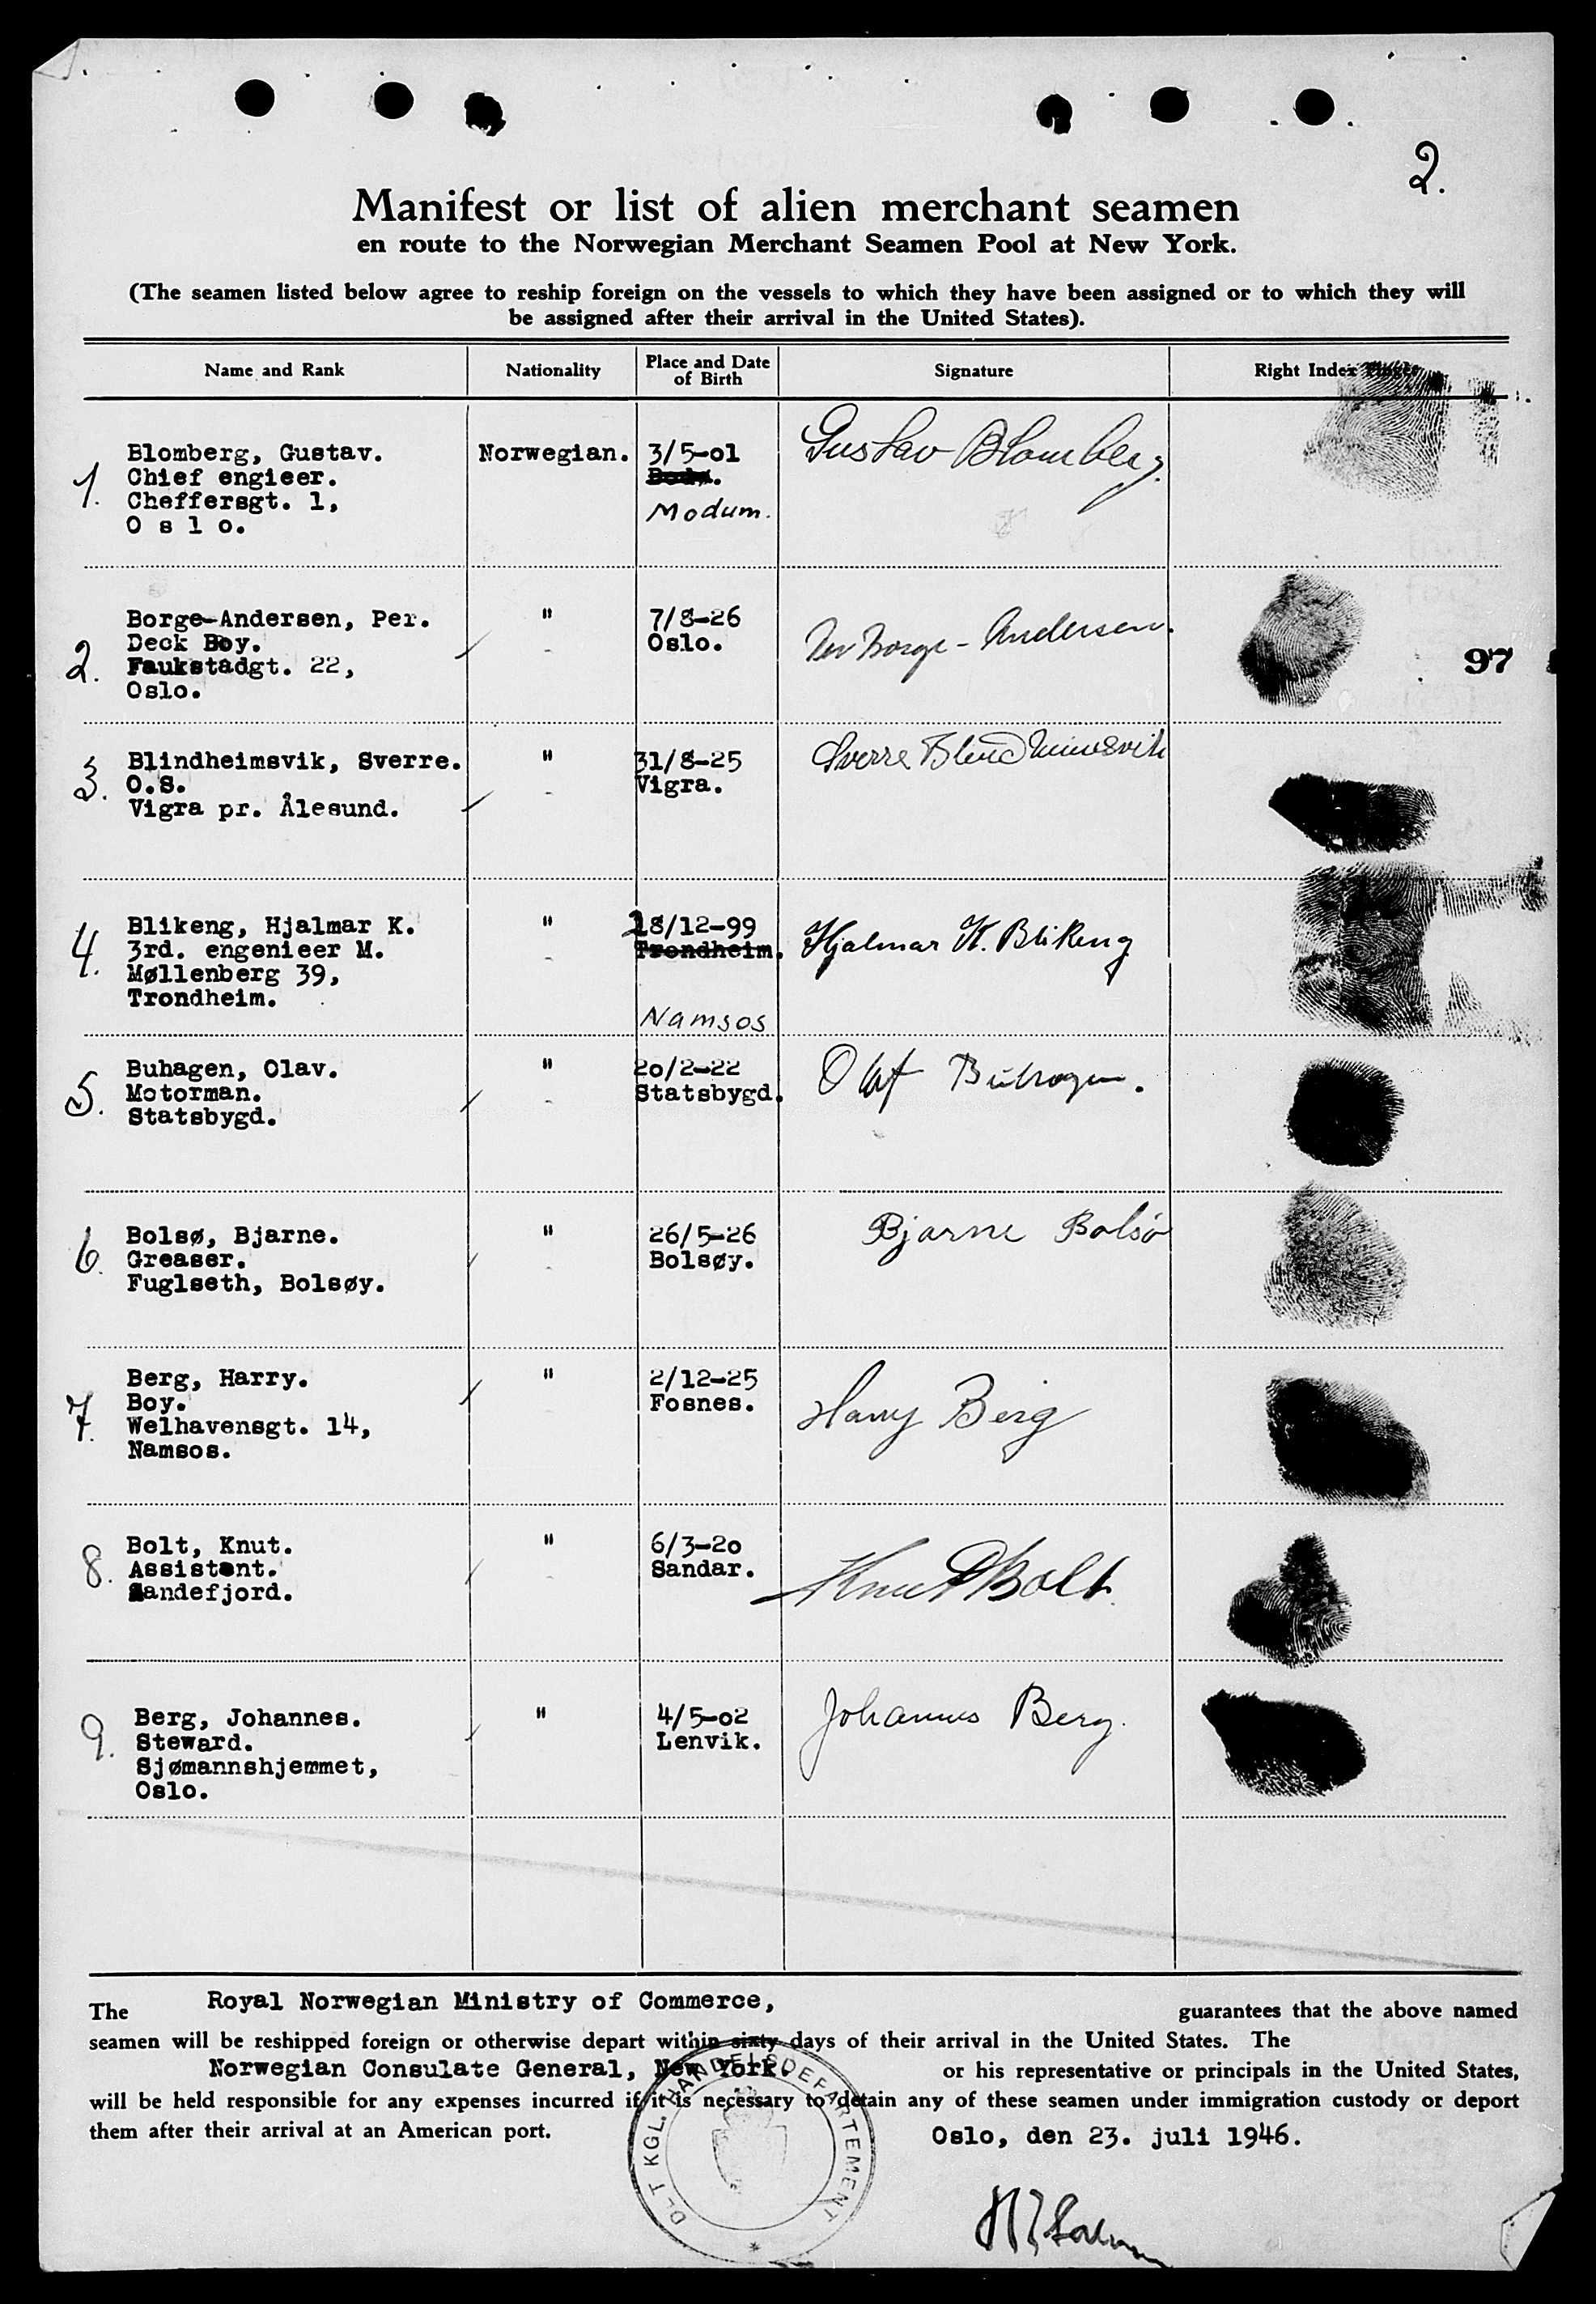 2.
Manifest or list of alien merchant seamen
en route to the Norwegian Merchant Seamen Pool at New York.
(The seamen listed below agree to reship foreign on the vessels to which they have been assigned or to which they will
be assigned after their arrival in the United States).
Name and Rank Nationality Place and Date of Birth Signature Right Index Finger
1. Blomberg, Gustav. Norwegian. 3/5-01 Gustav Blomberg.
Chief engieer. Bodø.
Cheffersgt. 1, Modum.
O s l o.
2. Borge-Andersen, Per. " 7/8-26 Per Borge-Andersen.
Deck Boy. Oslo.
Faukstadgt. 22, 97
Oslo.
3. Blindheimsvik, Sverre. " 31/8-25 Sverre Blindheimsvik
O.S. Vigra.
Vigra pr. Ålesund.
4. Blikeng, Hjalmar K. " 18/12-99 Hjalmar K. Blikeng
3rd. engenieer M. Trondheim.
Møllenberg 39,
Trondheim. Namsos
5. Buhagen, Olav. " 20/2-22 Olaf Buhagen.
Motorman. Statsbygd.
Statsbygd.
6. Bolsø, Bjarne. " 26/5-26 Bjarne Bolsø
Greaser. Bolsøy.
Fuglseth, Bolsøy.
7. Berg, Harry. " 2/12-25 Harry Berg
Boy. Fosnes.
Welhavensgt. 14,
Namsos.
8. Bolt, Knut. " 6/3-20 Knut Bolt.
Assistent. Sandar.
Sandefjord.
9. Berg, Johannes. " 4/5-02 Johannes Berg.
Steward. Lenvik.
Sjømannshjemmet,
Oslo.
The Royal Norwegian Ministry of Commerce, guarantees that the above named
seamen will be reshipped foreign or otherwise depart within sixty days of their arrival in the United States. The
Norwegian Consulate General, New York, or his representative or principals in the United States,
will be held responsible for any expenses incurred if it is necessary to detain any of these seamen under immigration custody or deport
them after their arrival at an American port.
Oslo, den 23. juli 1946.
DET KGL. HANDELSDEPARTEMENT